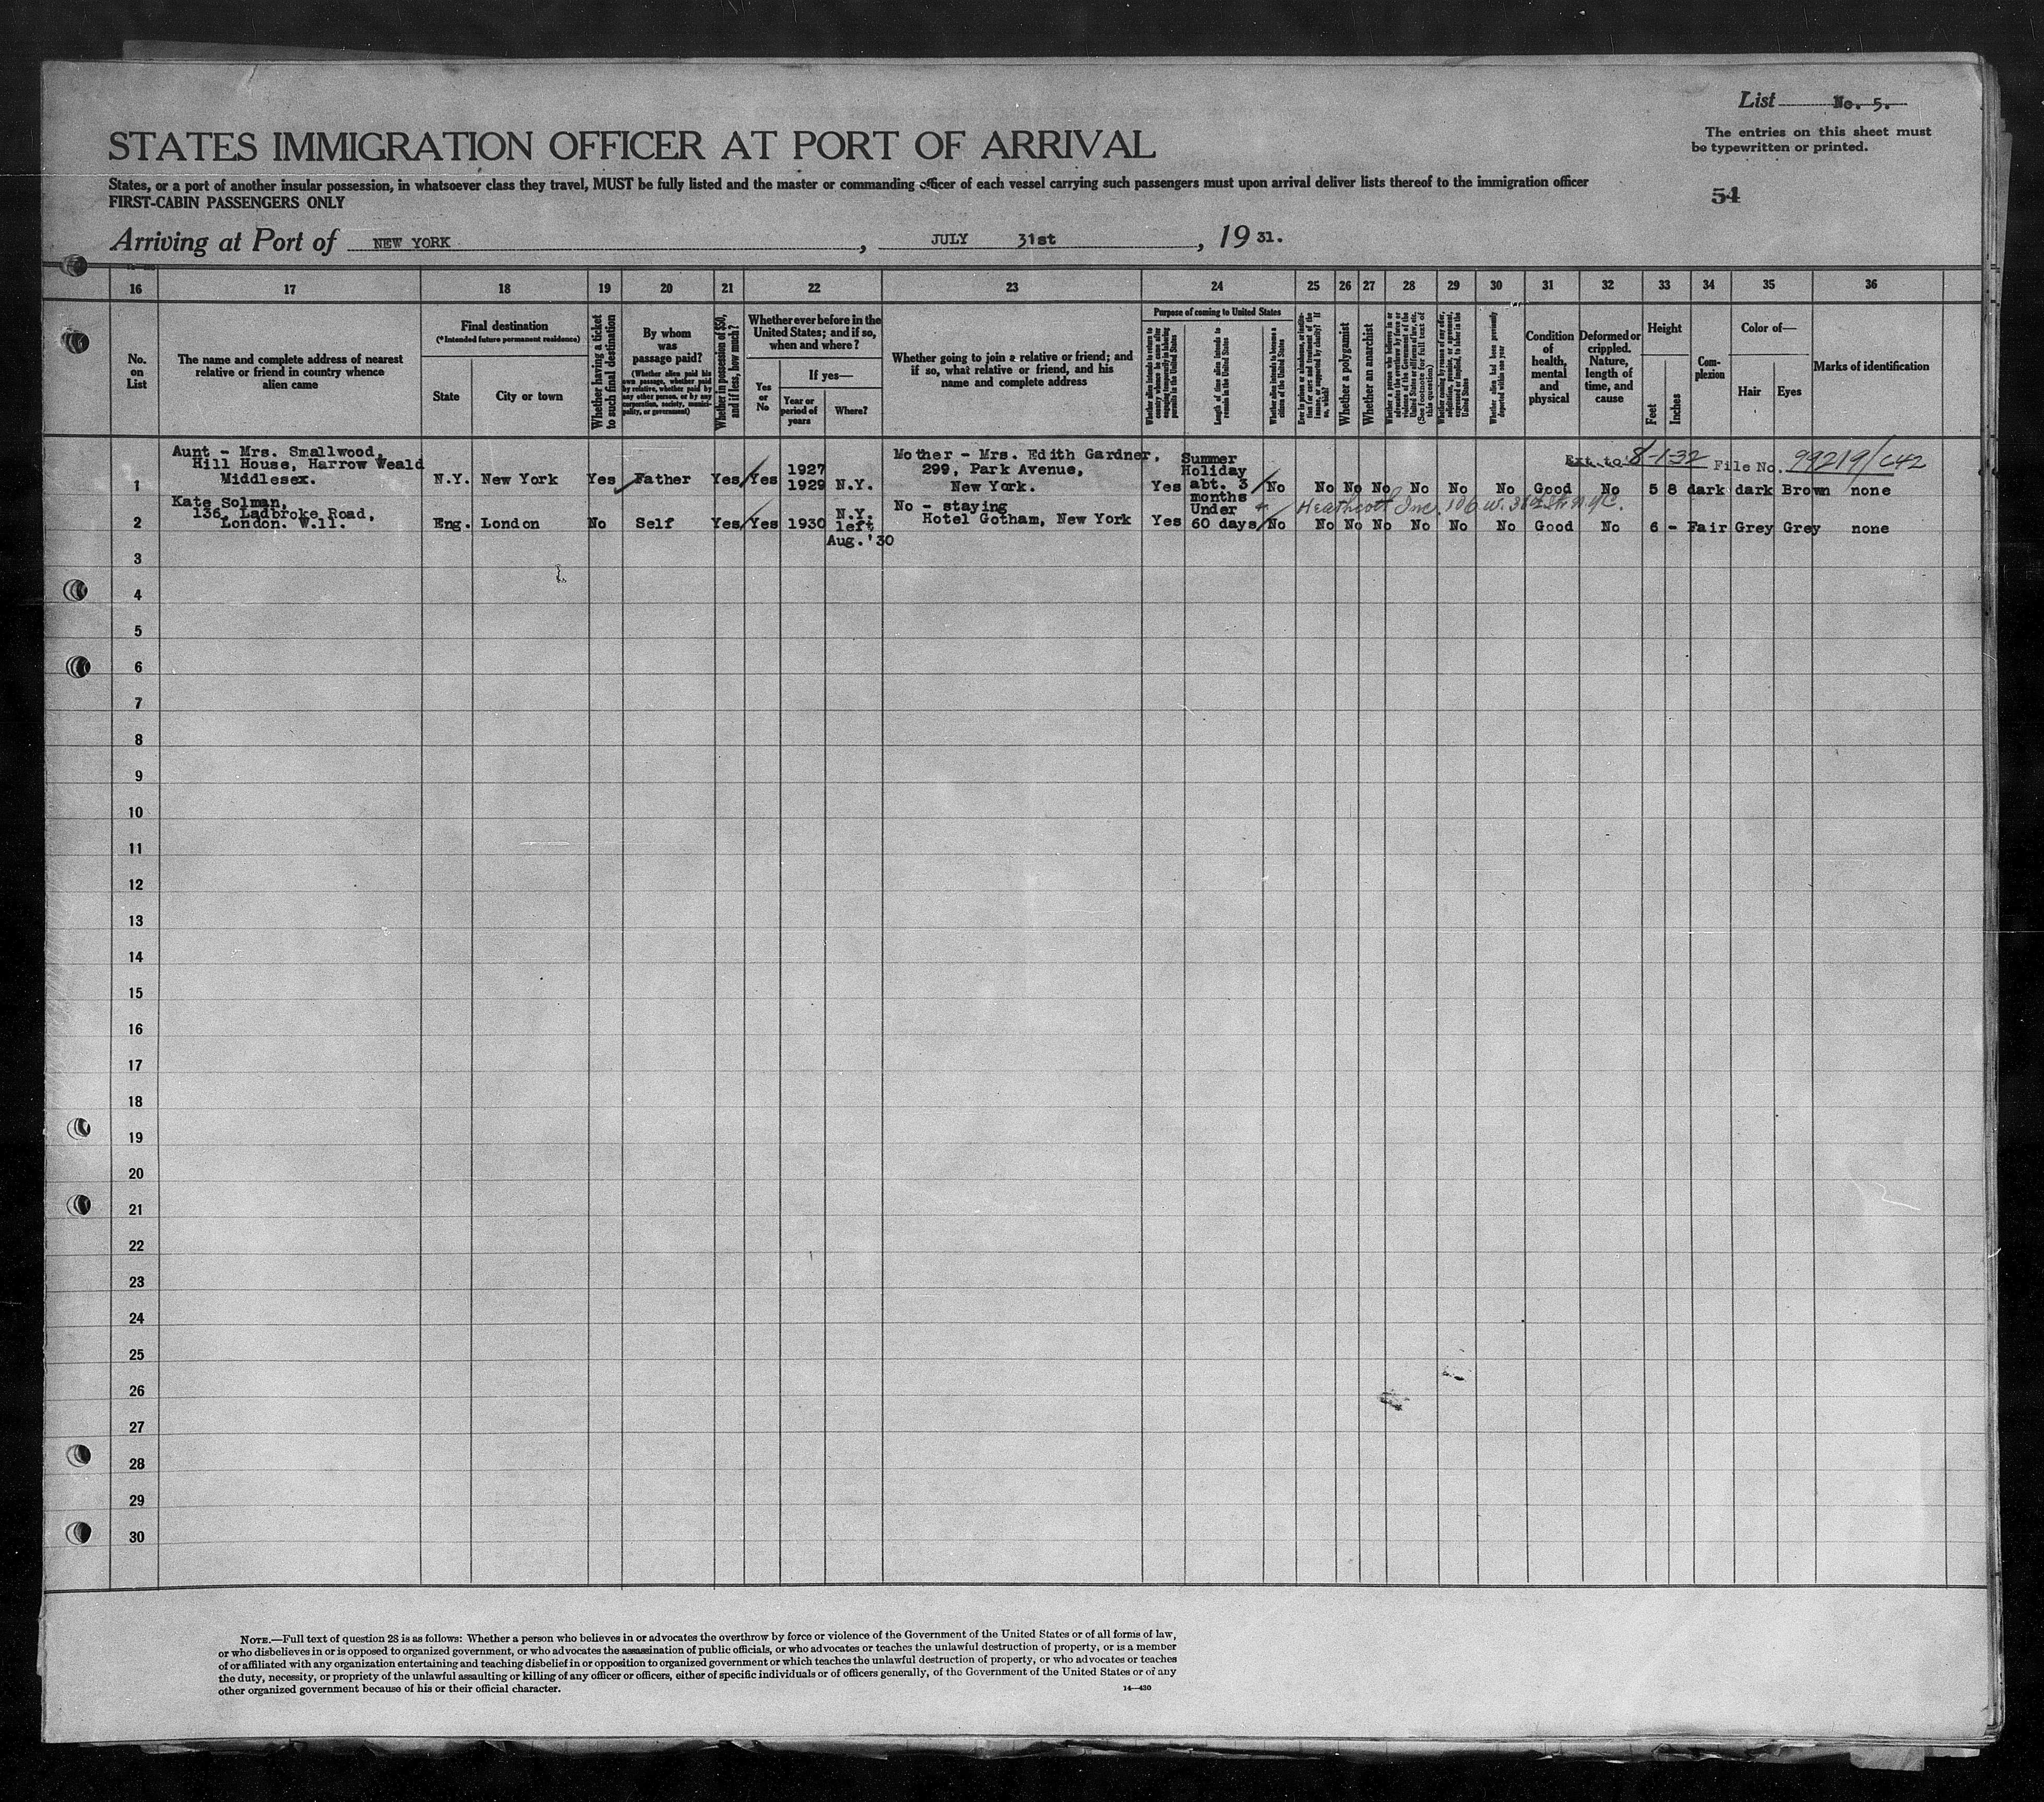 List No. 5.
The entries on this sheet must
be typewritten or printed.
STATES IMMIGRATION OFFICER AT PORT OF ARRIVAL
States, or a port of another insular possession, in whatsoever class they travel, MUST be fully listed and the master or commanding officer of each vessel carrying such passengers must upon arrival deliver lists thereof to the immigration officer
FIRST-CABIN PASSENGERS ONLY
54
Arriving at Port of NEW YORK, JULY 31st, 19 31.
16 17 18 19 20 21 22 23 24 25 26 27 28 29 30 31 32 33 34 35 36
No.
on
List
The name and complete address of nearest
relative or friend in country whence
alien came
Final destination
(*Intended future permanent residence)
State
City or town
Whether having a ticket
to such final destination
By whom
was
passage paid?
(Whether alien paid his
own passage, whether paid
by relative, whether paid by
any other person, or by any
corporation, society, munici-
pality, or government)
Whether in possession of $50,
and if less, how much?
Whether ever before in the
United States; and if so,
when and where?
Yes
or
No
If yes—
Year or
period of
years
Where?
Whether going to join a relative or friend; and
if so, what relative or friend, and his
name and complete address
Purpose of coming to United States
Whether alien intends to return to
country whence he came after
engaging temporarily in laboring
pursuits in the United States
Length of time alien intends to
remain in the United States
Whether alien intends to become a
citizen of the United States
Ever in prison or almshouse, or institu-
tion for care and treatment of the
insane, or supported by charity? If
so, which?
Whether a polygamist
Whether an anarchist
Whether a person who believes in or
advocates the overthrow by force or
violence of the Government of the
United States or all forms of law, etc.
(See footnote for full text of
this question)
Whether coming by reason of any offer,
solicitation, promise, or agreement,
expressed or implied, to labor in the
United States
Whether alien had been previously
deported within one year
Condition
of
health,
mental
and
physical
Deformed or
crippled.
Nature,
length of
time, and
cause
Height
Feet
Inches
Com-
plexion
Color of—
Hair
Eyes
Marks of identification
Ext. to 8-1-32 File No. 99219/642
Aunt - Mrs. Smallwood,
Hill House, Harrow Weald
Middlesex.
1 N.Y. New York Yes Father Yes Yes
1927
1929 N.Y.
Mother - Mrs. Edith Gardner,
299, Park Avenue,
New York.
Yes
Summer
Holiday
abt. 3
months
No No No No No No No Good No 5 8 dark dark Brown none
Kate Solman,
136, Ladbroke Road,
London. W.11.
2 Eng. London No Self Yes Yes 1930
N.Y.
left
Aug.'30
No - staying
Hotel Gotham, New York
Yes
Under
60 days
Heathcoat Inc. 106 W. 38th St. N.Y.C.
No No No No No No No Good No 6 - Fair Grey Grey none
3
4
5
6
7
8
9
10
11
12
13
14
15
16
17
18
19
20
21
22
23
24
25
26
27
28
29
30
NOTE.—Full text of question 28 is as follows: Whether a person who believes in or advocates the overthrow by force or violence of the Government of the United States or of all forms of law,
or who disbelieves in or is opposed to organized government, or who advocates the assassination of public officials, or who advocates or teaches the unlawful destruction of property, or is a member
of or affiliated with any organization entertaining and teaching disbelief in or opposition to organized government or which teaches the unlawful destruction of property, or who advocates or teaches
the duty, necessity, or propriety of the unlawful assaulting or killing of any officer or officers, either of specific individuals or of officers generally, of the Government of the United States or of any
other organized government because of his or their official character.
14—430